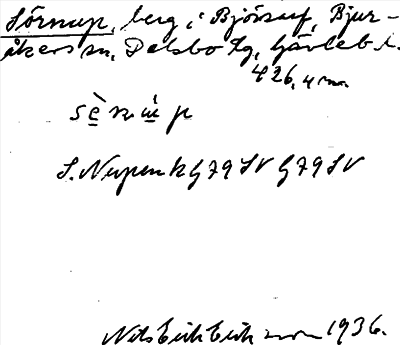 Sörnup, berg i Björsuf, Bjur-
åkers sn, Delsbo tg, Gävleb. l.
426,4 m
s. Nupen k G79SV G79SV
Nils Erik Eriksson 1936.